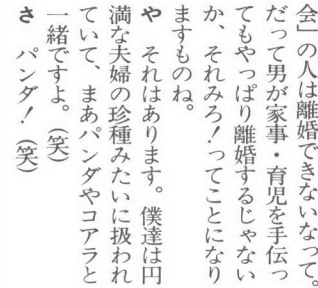 会」の人は離婚できないなって。
だって男が家事・育児を手伝っ
てもやっぱり離婚するじゃない
か、それみろ！ってことになり
ますものね。
や　それはあります。僕達は円
満な夫婦の珍種みたいに扱われ
ていて、まあパンダやコアラと
一緒ですよ。（笑）
さ　パンダ！（笑）